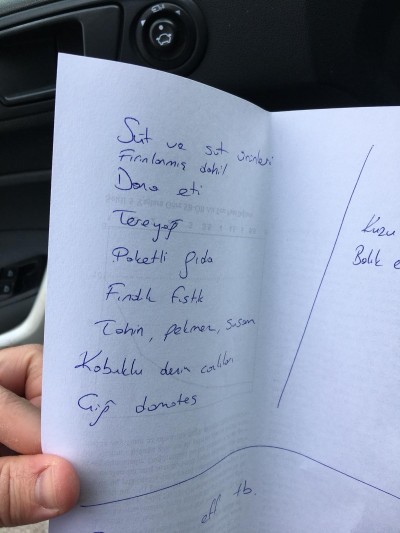 Süt ve süt ürünleri
Fırınlanmış dahil
Dana eti
Tereyağ
Paketli gıda
Fındık fıstık
Tahin, pekmez, susam
Kabuklu deniz canlıları
Çiğ domates
Kuzu
Balık e
eff tb.